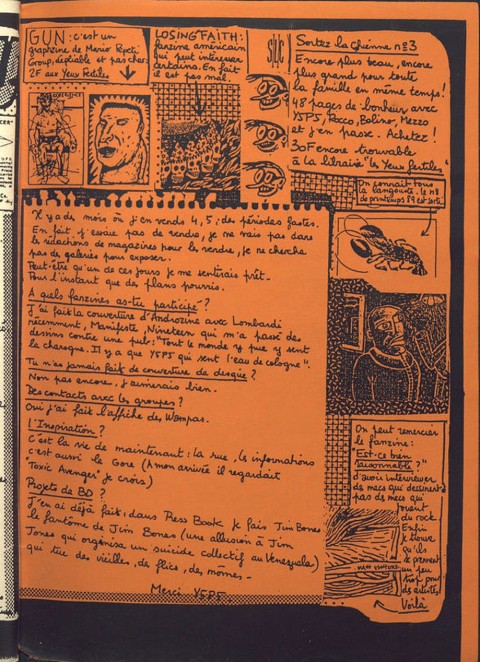 GUN : c'est un
graphzine de Mario Ripeti
Group: dépliable et pas cher:
2F aux Yeux Fertiles
LOSING FAITH :
fanzine américain
qui peut intéresser
certains. En fait
il est pas mal
Sortez la chienne no3
Encore plus beau, encore
plus grand pour toute
la famille en même temps!
48 pages de bonheur avec
Y5P5, Rocco, Bolino, Mezzo
et j'en passe. Achetez!
30F encore trouvable
à la librairie "les Yeux fertiles"
On connaît tous
la langouste. le n8
de printemps 89 est sorti
Il y a des mois où j'en vends 4, 5; des périodes fastes.
En fait, j'essaie pas de vendre, je ne vais pas dans
les rédactions de magazines pour les vendre, je ne cherche
pas de galeries pour exposer.
Peut-être qu'un de ces jours je me sentirais prêt-
Pour l'instant que des plans pourris.
A quels fanzines as-tu participé?
J'ai fait la couverture d'Androzine avec Lombardi
récemment, Manifeste, Nineteen qui m'a passé des
dessins contre une pub: "Tout le monde y pue y sent
la charogne. Il y a que Y5P5 qui sent l'eau de cologne".
Tu n'as jamais fait de couverture de disque?
Non pas encore, j'aimerais bien.
Des contacts avec les groupes?
Oui j'ai fait l'affiche de Wampas.
L'Inspiration?
C'est la vie de maintenant: la rue, les informations
c'est aussi le Gore (A mon arrivée il regardait
"Toxic Avenger" je crois)
Projets de BD?
J'en ai déjà fait: dans Press Book je fais Jim Bones
le fantôme de Jim Bones (une allusion à Jim
Jones qui organisa un suicide collectif au Venezuela)
qui tue des vieilles, des flics, des mômes-
Merci Y5P5
On peut remercier
le fanzine:
"Est-ce bien
raisonnable?"
d'avoir interviewer
des mecs qui dessinent
pas des mecs qui
jouent
du rock.
Enfin
je trouve
qu'ils
se prennent
un peu
trop pour
des artistes
Voilà